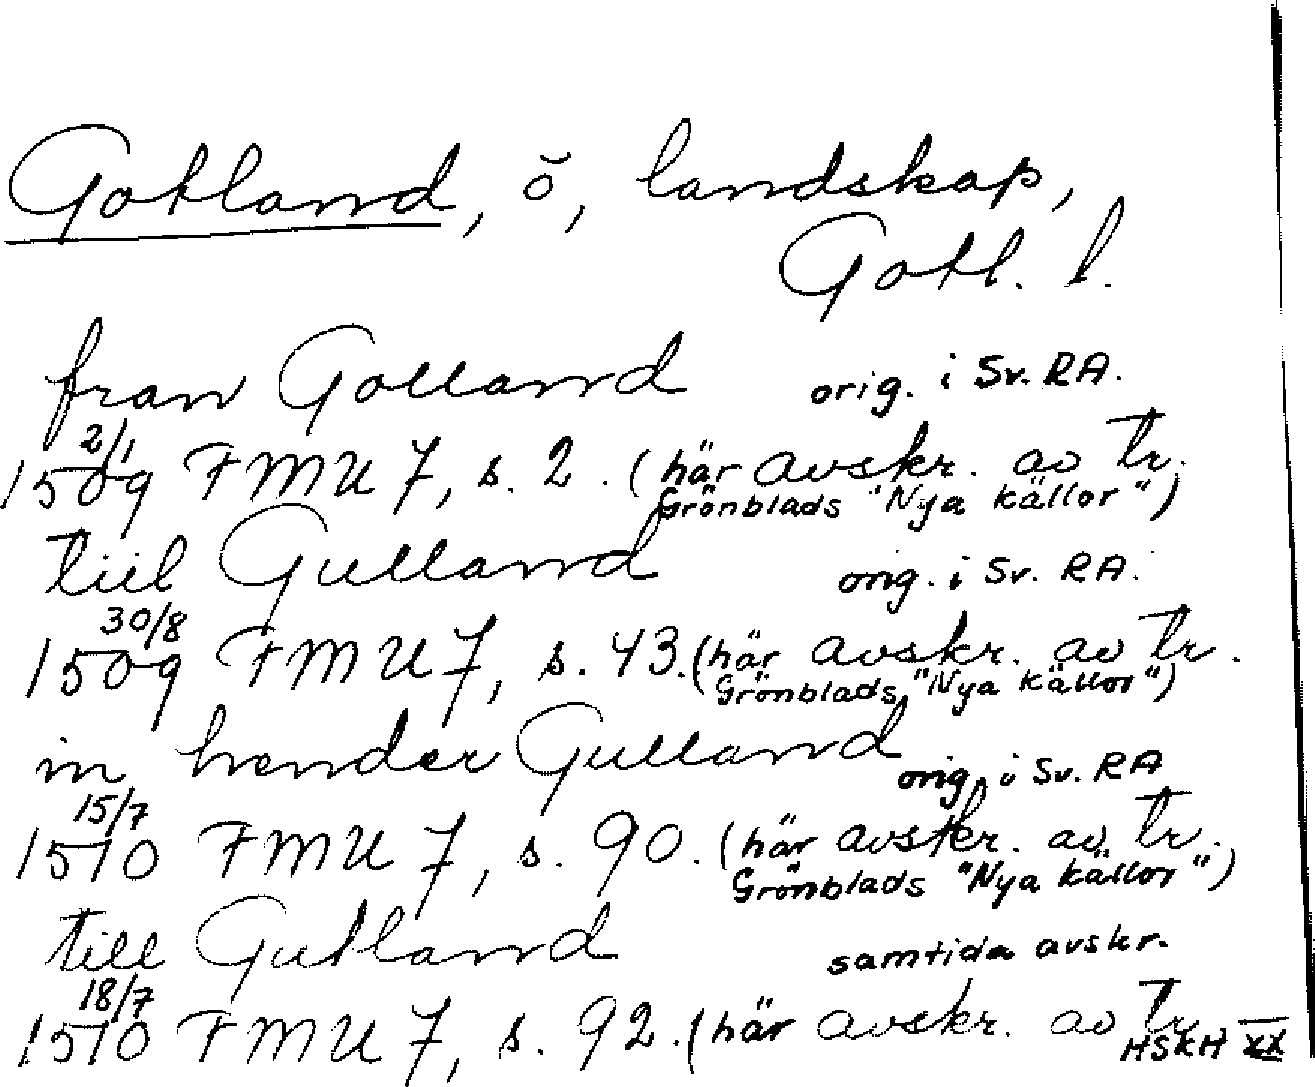 Gotland, ö, landskap,
Gotl. l.
fran Golland orig. i Sv. RA.
2/1
1509 FMU 7, s. 2. (här avskr. av tr.
Grönblads "Nya källor")
tiil Gulland orig. i Sv. RA.
30/8
1509 FMU 7, s. 43. (här avskr. av tr.
Grönblads "Nya källor")
in hender Gulland orig. i Sv. RA
15/7
1510 FMU 7, s. 90. (här avskr. av tr.
Grönblads "Nya källor")
till Gutland samtida avskr.
18/7
1510 FMU 7, s. 92. (här avskr. av tr.
HSKH XX